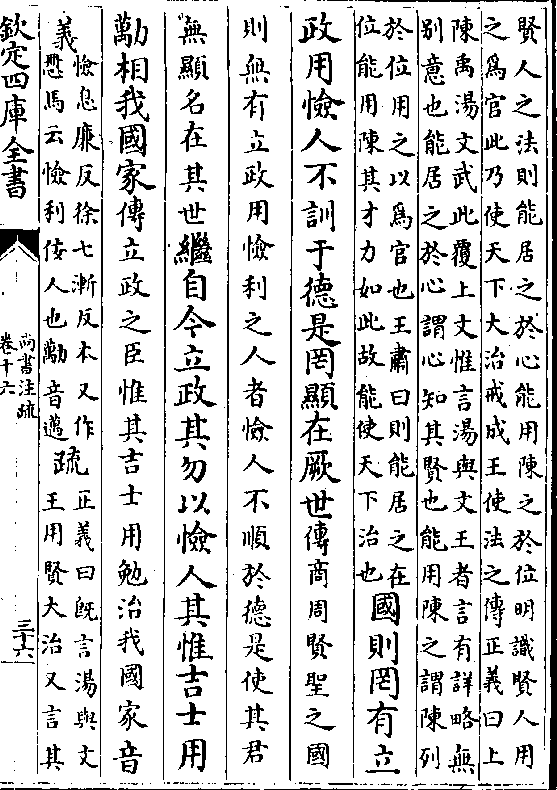 賢人之法則能居之於心能用陳之於位明識賢人用
之為官此乃使天下大治戒成王使法之傳正義曰上
陳禹湯文武此覆上文惟言湯與文王者言有詳略無
别意也能居之於心謂心知其賢也能用陳之謂陳列
於位用之以為官也王肅曰則能居之在
位能用陳其才力如此故能使天下治也
國則罔有立
政用憸人不訓于德是罔顯在厥世傳商周賢聖之國
則無有立政用憸利之人者憸人不順於德是使其君
無顯名在其世繼自今立政其勿以憸人其惟吉士用
勱相我國家傳立政之臣惟其吉士用勉治我國家音
義憸息廉反徐七漸反本又作
㦃馬云憸利佞人也勱音邁
疏正義曰既言湯與文
王用賢大治又言其
欽定四庫全書
尚書注疏
卷十六
三十六